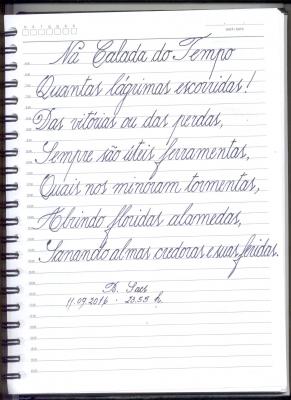 Na Calada do Tempo
Quantas lágrimas escorridas!
Das vitórias ou das perdas,
Sempre são úteis ferramentas,
Quais nos minoram tormentas,
Abrindo floridas alamedas,
Sanando almas credoras e suas feridas.
Saes
11.09.2016 . 23.55 h.